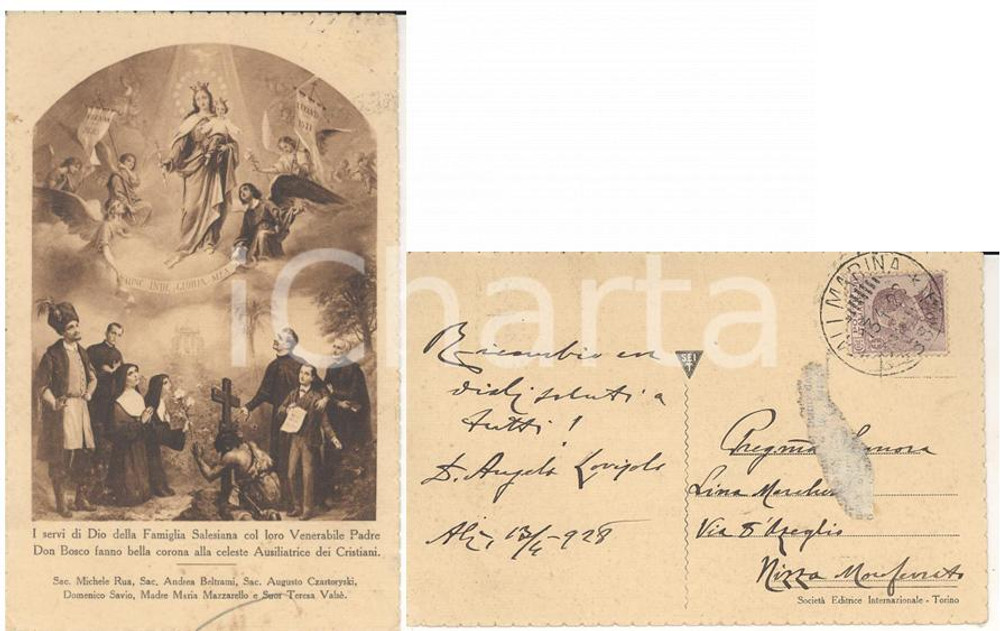 HINC INDE GLORIA MEA
I servi di Dio della Famiglia Salesiana col loro Venerabile Padre
Don Bosco fanno bella corona alla celeste Ausiliatrice dei Cristiani.
Sac. Michele Rua, Sac. Andrea Beltrami, Sac. Augusto Czartoryski,
Domenico Savio, Madre Maria Mazzarello e Suor Teresa Valsè.
iCharta
Ricambio
saluti a
tutti!
D. Angelo
Alì, 13/4-928
SEI
T
ALÌ MARINA
Pregma
Lina
Via D'Azeglio
Nizza Monferrato
Società Editrice Internazionale - Torino